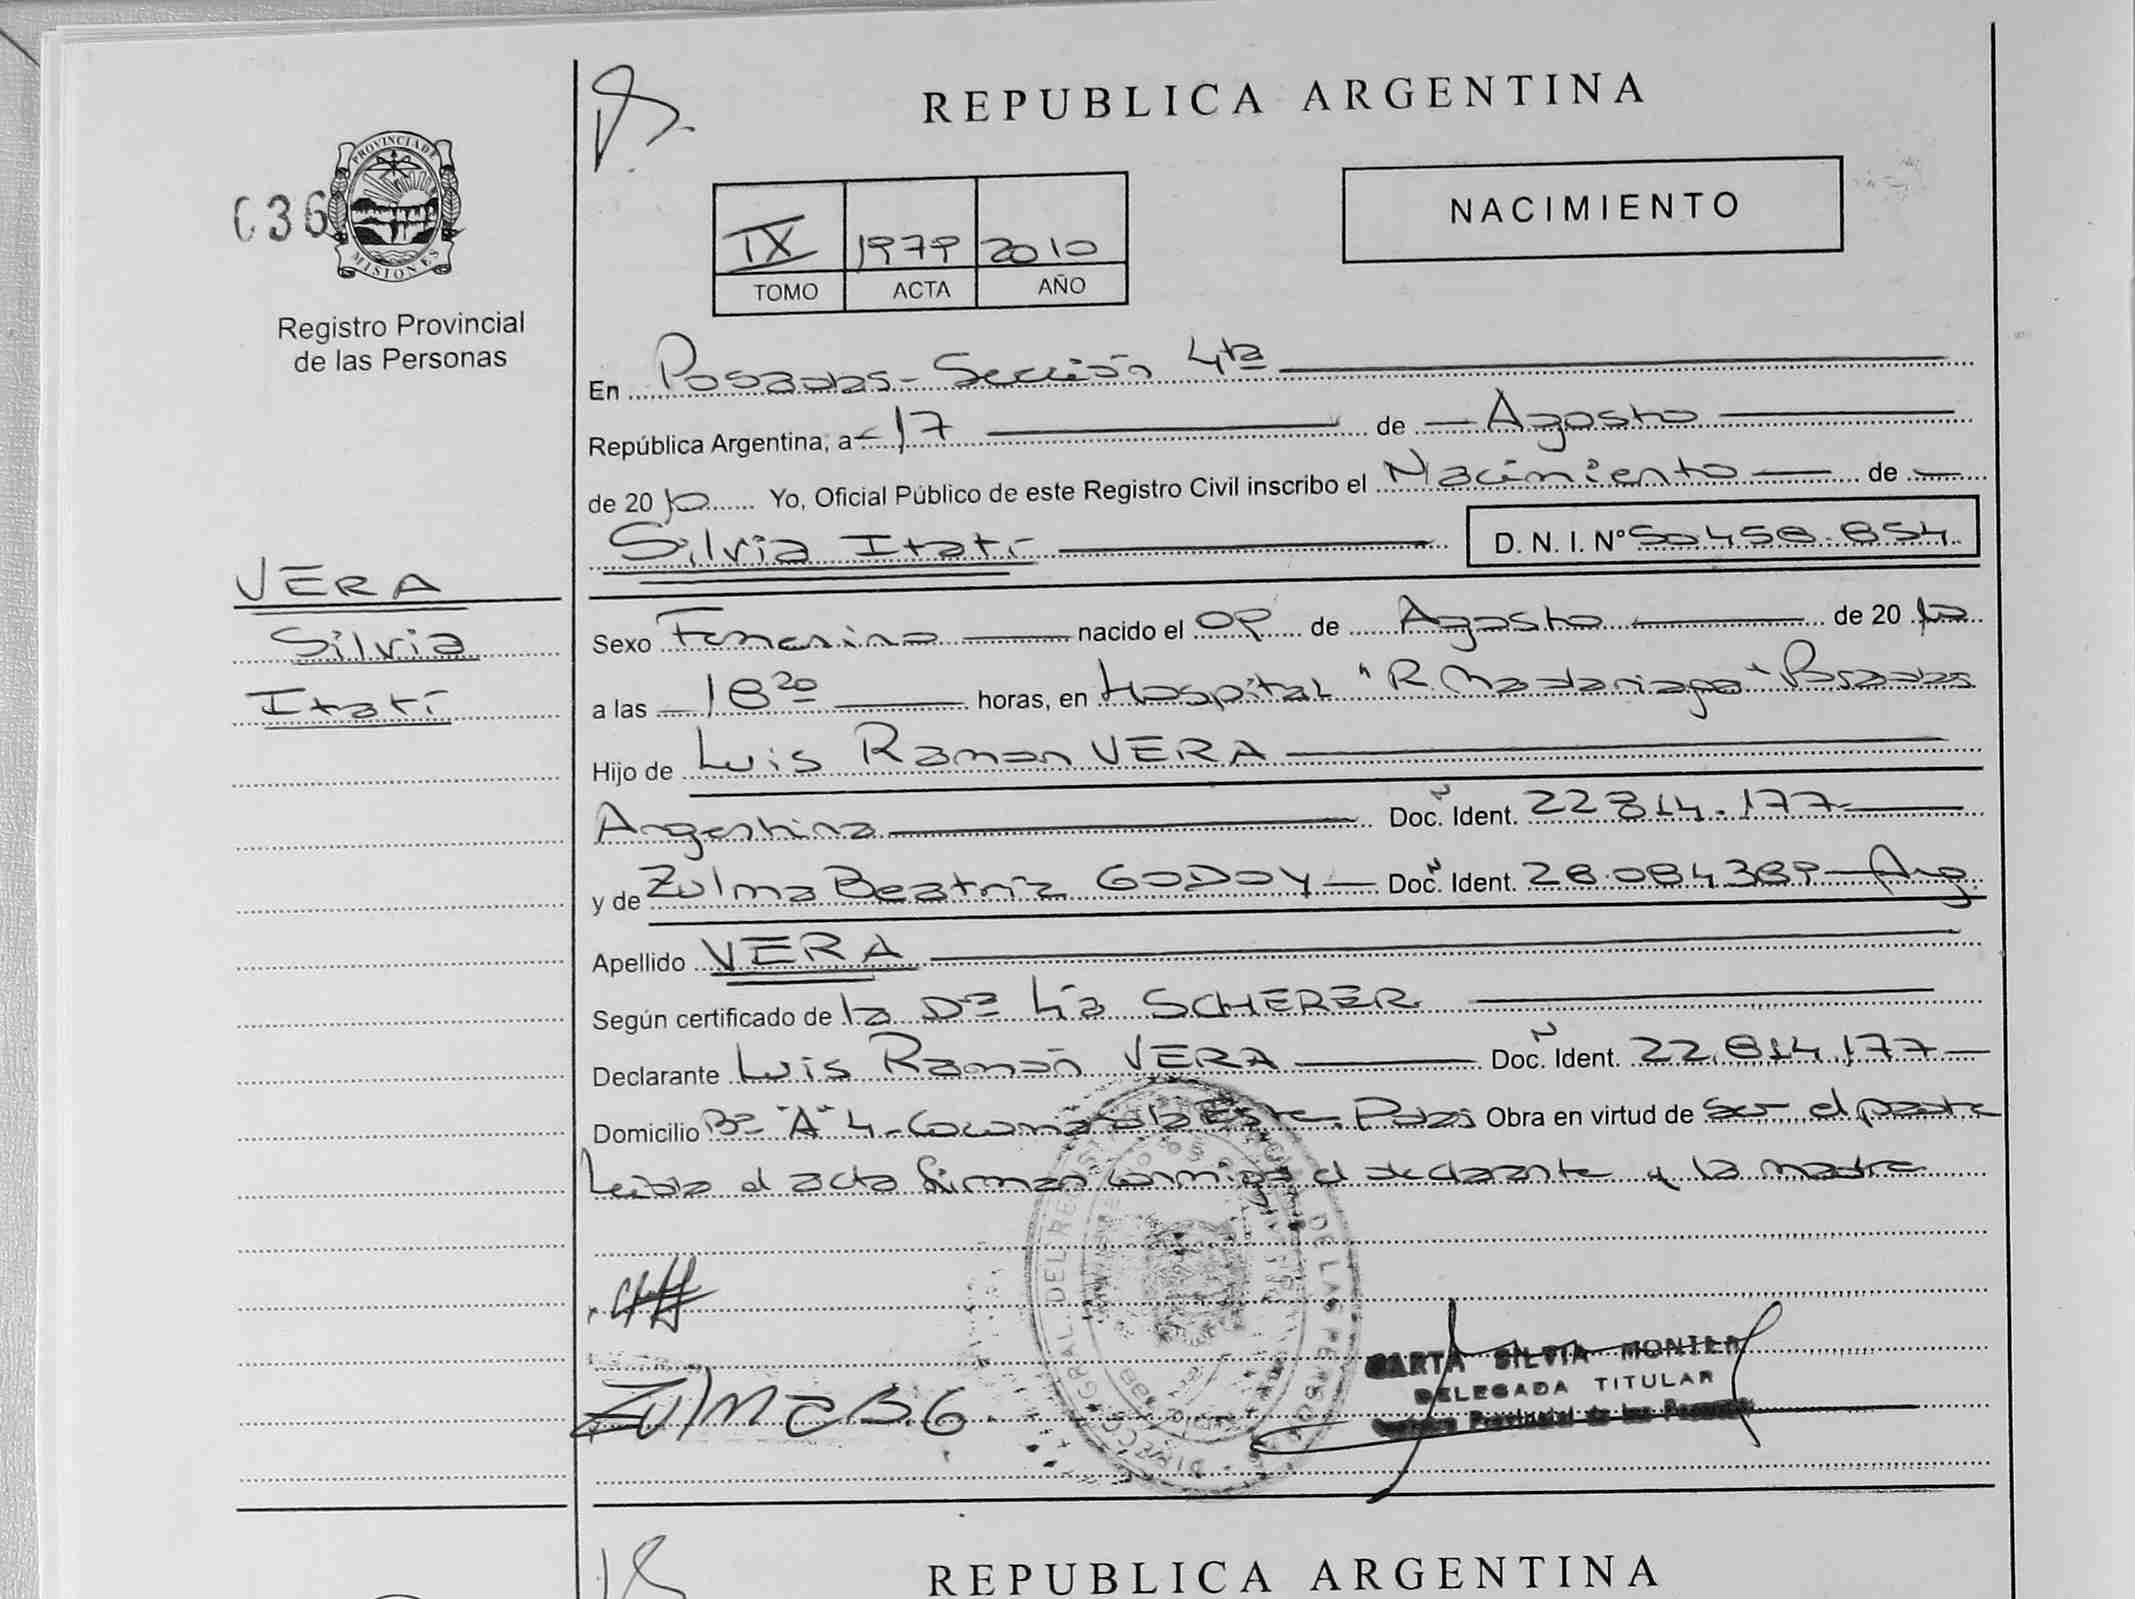 REPUBLICA ARGENTINA
036
PROVINCIA DE
MISIONES
Registro Provincial
de las Personas
NACIMIENTO
IX 1979 2010
TOMO ACTA AÑO
En Posadas - Sección 4ta
República Argentina, a 17 de Agosto
de 2010 Yo, Oficial Público de este Registro Civil inscribo el Nacimiento de
Silvia Itatí D. N. I. Nº 50.458.854
VERA
Silvia
Itatí
Sexo Femenino nacido el 09 de Agosto de 2010
a las 18 20 horas, en Hospital "R. Madariaga" Posadas
Hijo de Luis Ramon VERA
Argentina Doc. Ident. 22.814.177
y de Zulma Beatriz GODOY Doc. Ident. 28.084.389 - Arg.
Apellido VERA
Según certificado de la Dra Lía SCHERER
Declarante Luis Ramón VERA Doc. Ident. 22.814.177
Domicilio Bº "A" 4 - Obra en virtud de ser el padre
Leida el acta firman conmigo el declarante y la madre
Zulma B. G.
SILVIA
DELEGADA TITULAR
Provincial de las Personas
REPUBLICA ARGENTINA